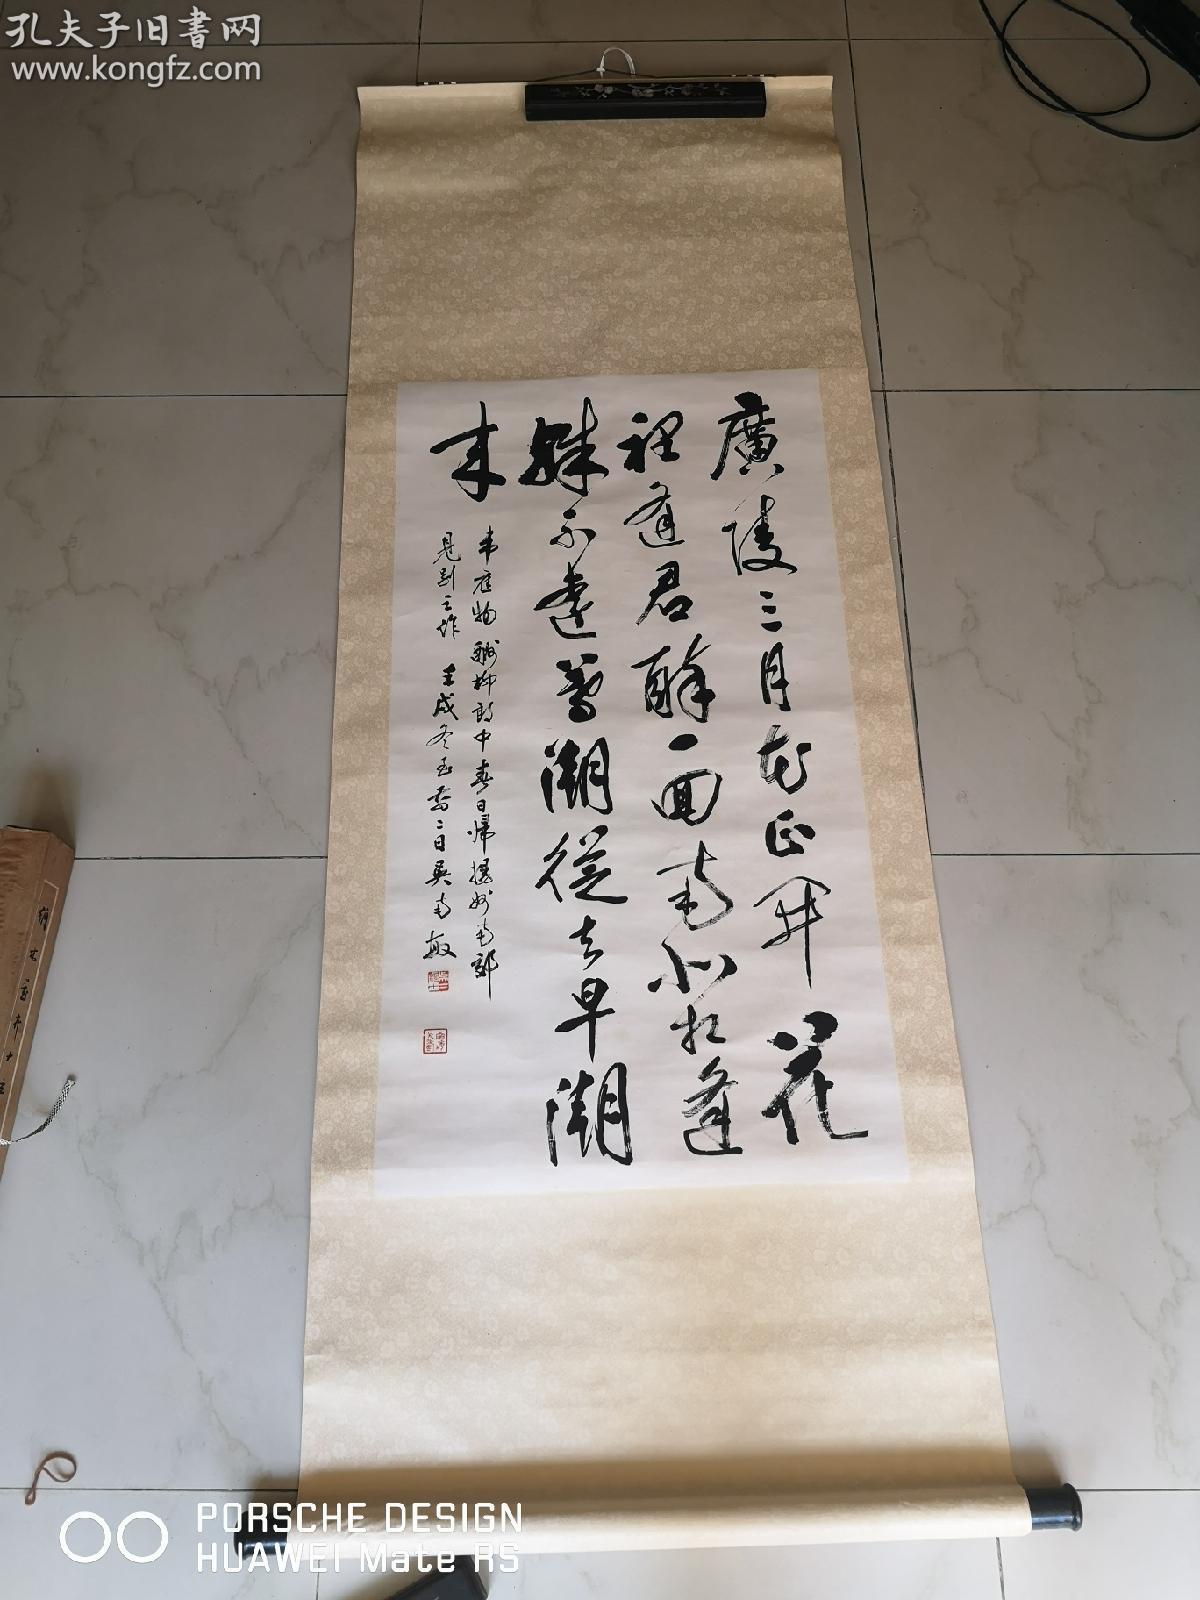 孔夫子旧書网
www.kongfz.com
廣陵三月花正開花
裡逢君醉一回南北相逢
殊不遠暮潮從去早潮
来
韋應物酬柳郎中春日歸揚州南郭
見別之作 壬戌冬至前二日吴南敏
PORSCHE DESIGN
HUAWEI Mate RS